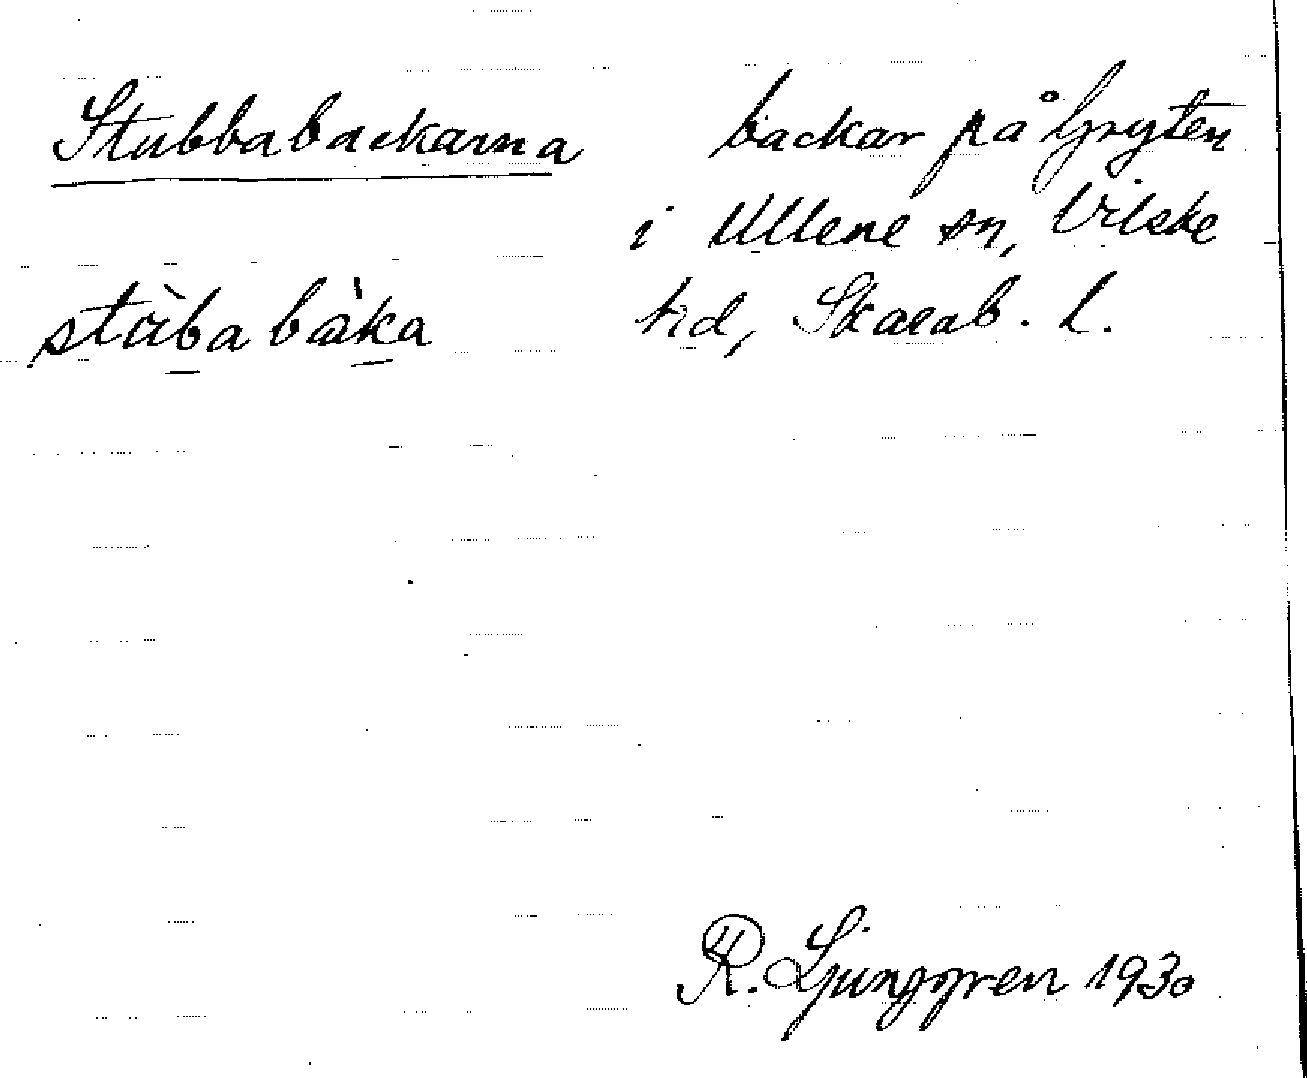 Stubbabackarna backar på Gryten
i Ullene sn, Vilske
stùbabàka hd, Skarab. l.
R. Ljunggren 1930